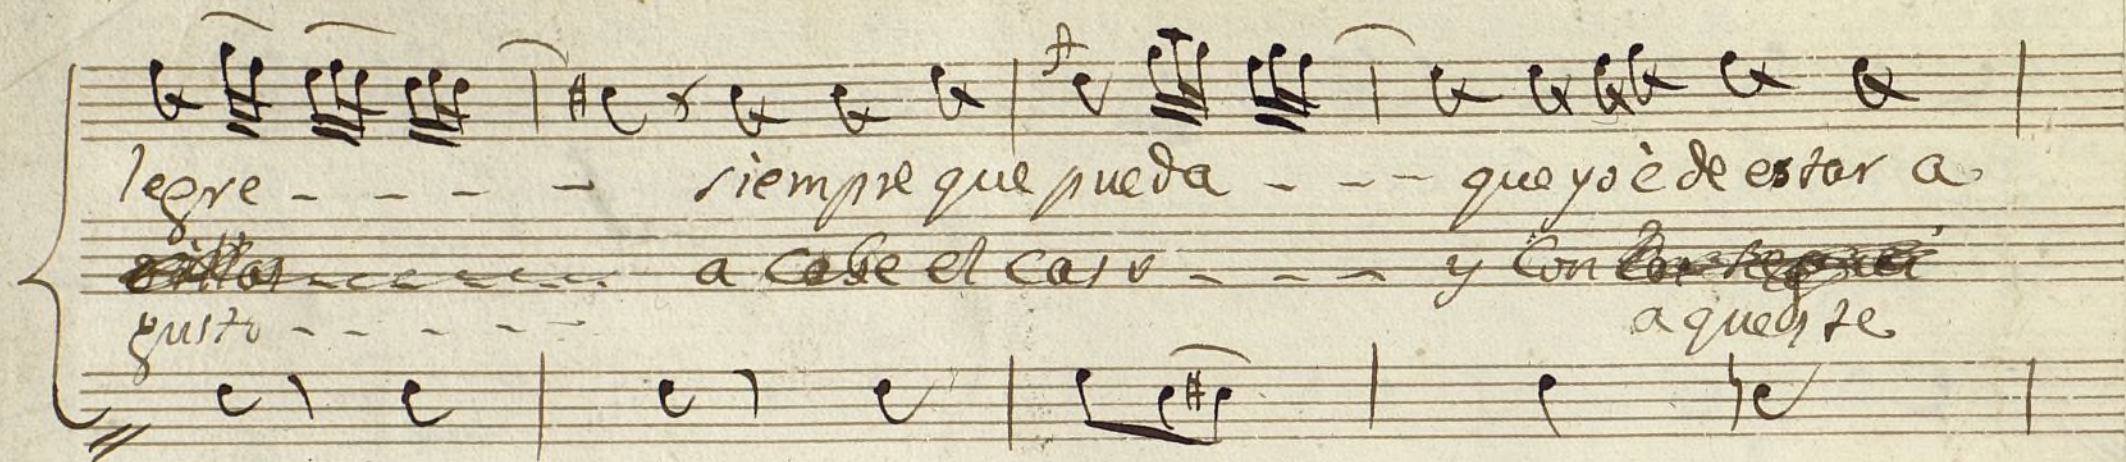 legre - - - - siempre que pueda - - - que yo è de estar a
a cabe el caso - - - y con
gusto - - - - - aqueste